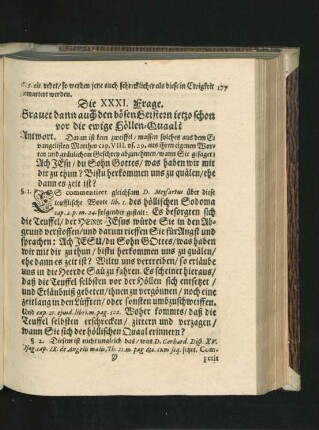 c. 5. eit. redet/ so werden jene auch schrecklicher als diese in Ewigkeit 177
gemartert werden.
Die XXXI. Frage.
Grauet dann auch den bösen Geistern ietzo schon
vor die ewige Höllen-Quaal?
Antwort. Daran ist kein zweiffel/ massen solches aus dem E-
vangelisten Matthæo cap. VIII. vs. 29. aus ihren eigenen Wor-
ten und gräulichem Geschrey abzunehmen/ wann Sie gesaget:
Ach JEsu du Sohn Gottes/ was haben wir mit
dir zu thun? Bistu herkommen uns zu quälen/ ehe
dann es zeit ist?
§. 1. ES commentiret gleichsam D. Meyfartus über diese
teufflische Worte lib. 1. des höllischen Sodoma
cap. 2. p. m. 24. folgender gestalt: Es besorgten sich
die Teuffel/ der HErr JEsus würde Sie in den Ab-
grund verstossen/ und darum rieffen Sie für Angst und
sprachen: Ach JESU/ du Sohn GOttes/ was haben
wir mir dir zu thun/ bistu herkommen uns zu quälen/
ehe dann es zeit ist? Wiltu uns vertreiben/ so erläube
uns in die Heerde Säu zu fahren. Es scheinet hieraus/
daß die Teuffel selbsten vor der Höllen sich entsetzet/
und Erläubniß gebeten/ ihnen zu vergönnen/ noch eine
zeitlang in den Lüfften/ oder sonsten umbzuschweiffen.
Und cap. 21. ejusd. libri. m. pag. 512. Woher kommts/ daß die
Teuffel selbsten erschrecken/ zittern und verzagen/
wann Sie sich der höllischen Quaal erinnern?
§. 2. Diesem ist nicht ungleich das/ was D. Gerhard. Disp. XV.
Isag. cap. IX. de Angelis malis, Th. 21. m. pag. 612. cum seq. setzet. Com-